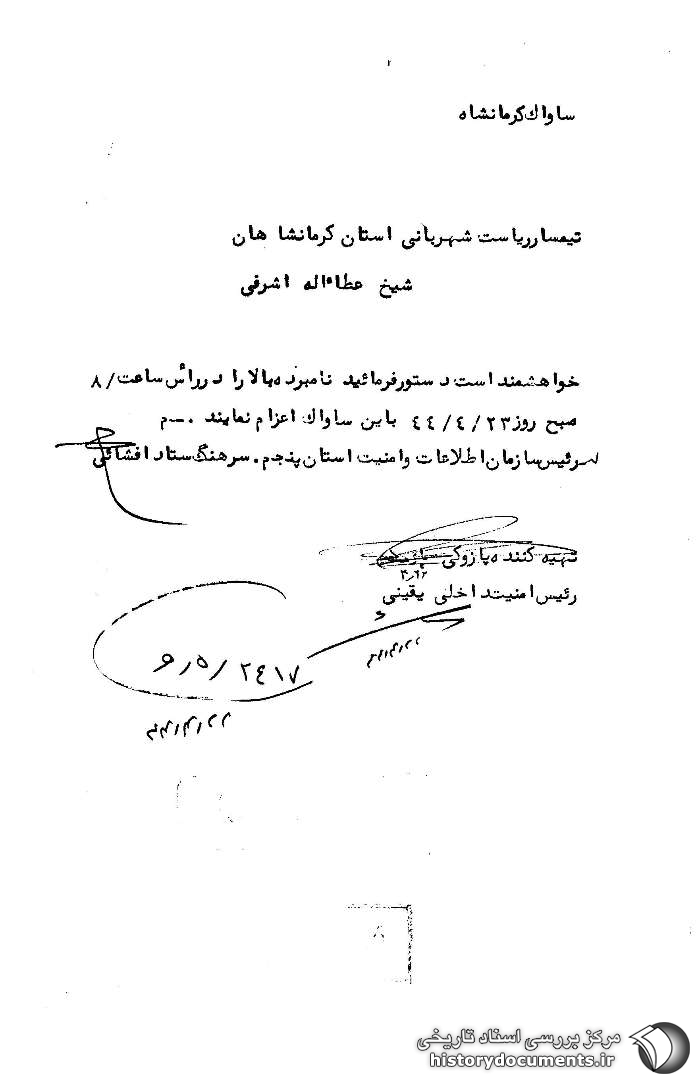 ساواک کرمانشاه
تیمسار ریاست شهربانی استان کرمانشاهان
شیخ عطاءاله اشرفی
خواهشمند است دستور فرمائید نامبرده بالا را در رأس ساعت ۸/
صبح روز ۴۴/۴/۲۳ باین ساواک اعزام نمایند . ـ م
رئیس سازمان اطلاعات و امنیت استان پنجم . سرهنگ ستاد افشائی
تهیه کننده پازوکی
رئیس امنیت داخلی یقینی
۲۴۱۷/ ۵ر۹
۸
مرکز بررسی اسناد تاریخی
historydocuments.ir